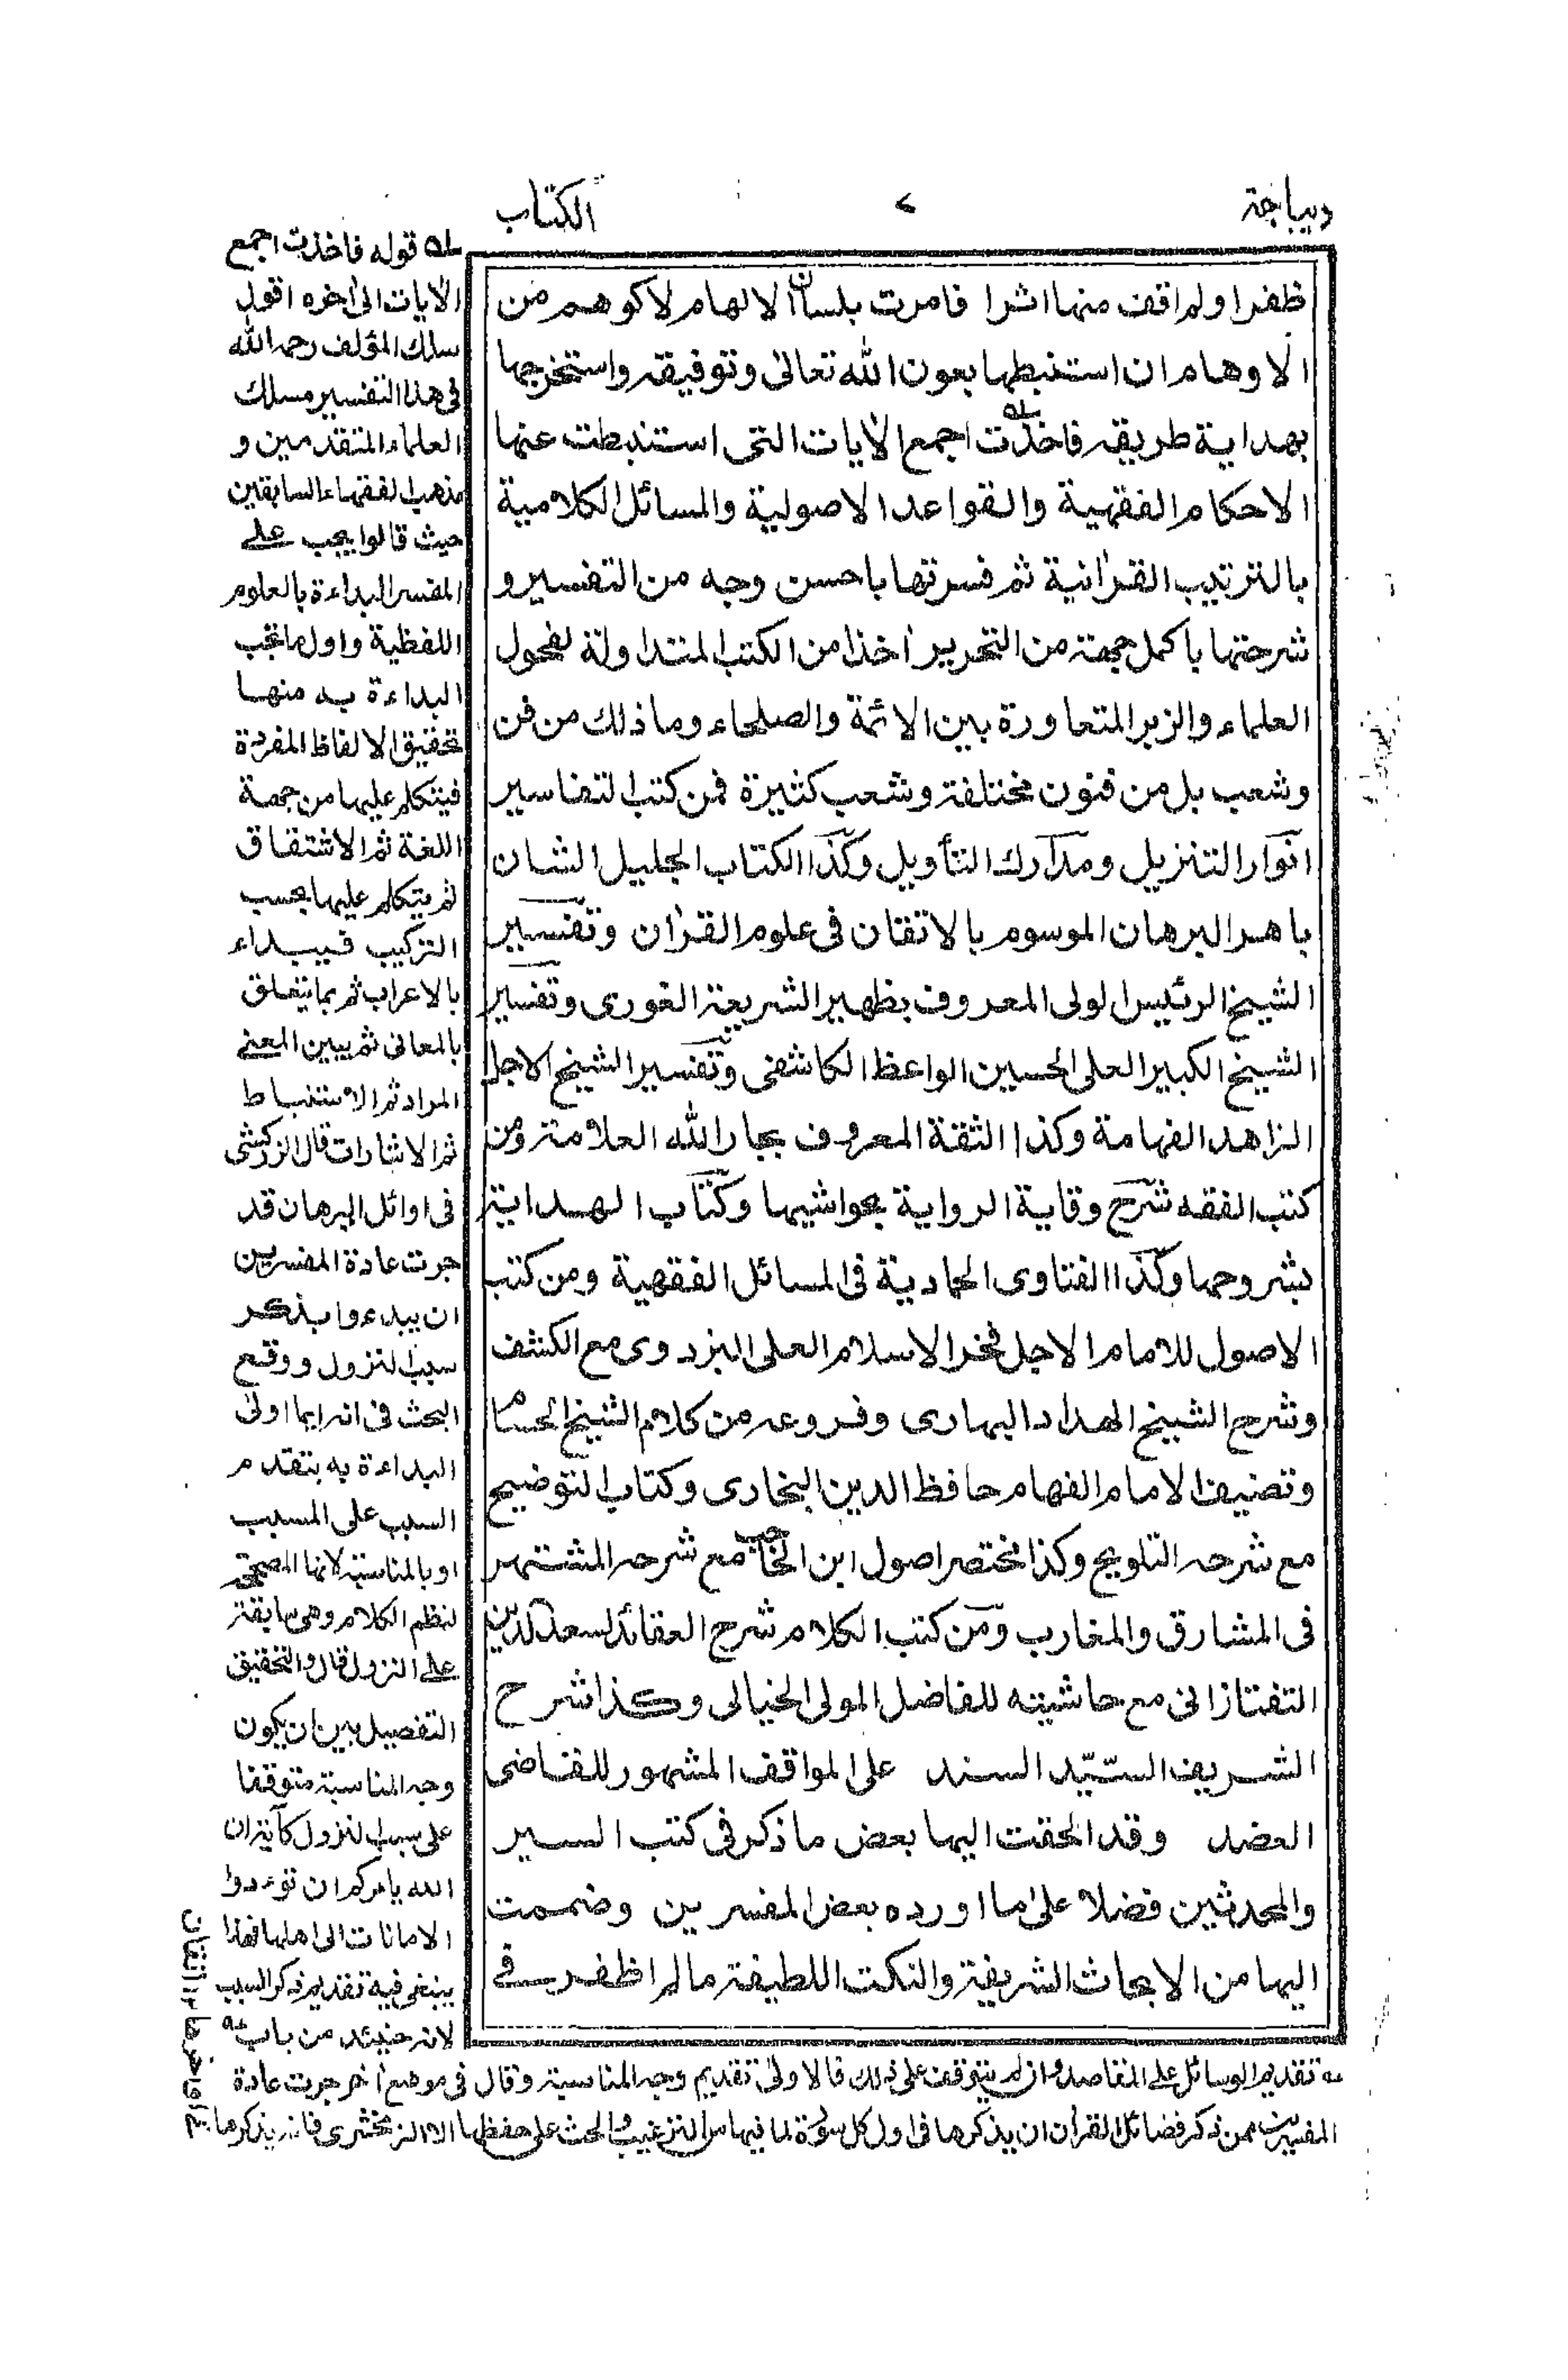 ديباجة
٧
الكتاب
ظفرا ولم اقف منها اثرا فامرت بلسان الالهام لا كوهم من
الاوهام ان استنبطها بعون الله تعالى وتوفيقه واستخرجها
بهداية طريقه فاخذت اجمع الآيات التى استنبطت عنها
الاحكام الفقهية والقواعد الاصولية والمسائل الكلامية
بالترتيب القرانية ثم فسرتها باحسن وجه من التفسير و
شرحتها باكمل جهة من التحرير اخذا من الكتب المتداولة لفحول
العلماء والزبر المتعاورة بين الائمة والصلحاء وما ذلك من فن
وشعب بل من فنون مختلفة وشعب كثيرة فمن كتب التفاسير
انوار التنزيل ومدارك التأويل وكذا الكتاب الجليل الشان
باهر البرهان الموسوم بالاتقان فى علوم القران وتفسير
الشيخ الرئيس الولى المعروف بظهير الشريعة الغورى وتفسير
الشيخ الكبير العلى الحسين الواعظ الكاشفى وتفسير الشيخ الاجل
الزاهد الفهامة وكذا الثقة المعروف بجار الله العلامة ومن
كتب الفقه شرح وقاية الرواية بحواشيها وكتاب الهداية
بشروحها وكذا الفتاوى الحمادية فى المسائل الفقهية ومن كتب
الاصول للامام الاجل فخر الاسلام العلى البزدوى مع الكشف
وشرح الشيخ الهداد البهارى وفروعه من كلام الشيخ الحسام
وتصنيف الامام الفهام حافظ الدين البخارى وكتاب التوضيح
مع شرحه التلويح وكذا مختصر اصول ابن الحاجب مع شرحه المشتهر
فى المشارق والمغارب ومن كتب الكلام شرح العقائد لسعد الدين
التفتازانى مع حاشيته للفاضل المولى الخيالى وكذا شرح
الشريف السيّد السند على المواقف المشهور للقاضى
العضد وقد الحقت اليها بعض ما ذكر فى كتب السير
والمحدثين فضلا على ما اورده بعض المفسرين وضممت
اليها من الابحاث الشريفة والنكت اللطيفة ما لم اظفر به فى
له قوله فاخذت اجمع
الايات الى اخره اقول
سلك المؤلف رحمه الله
فى هذا التفسير مسلك
العلماء المتقدمين و
مذهب الفقهاء السابقين
حيث قالوا يجب على
المفسر البداءة بالعلوم
اللفظية واول ما تجب
البداءة به منها
تحقيق الالفاظ المفردة
فيتكلم عليها من جهة
اللغة ثم الاشتقاق
ثم يتكلم عليها بحسب
التركيب فيبداء
بالاعراب ثم بما يتعلق
بالمعانى ثم يبين المعنى
المراد ثم الاستنباط
ثم الاشارات قال الزركشى
فى اوائل البرهان قد
جرت عادة المفسرين
ان يبدءوا بذكر
سبب النزول ووقع
البحث فى انه ايما اولى
البداءة به بتقدم
السبب على المسبب
او بالمناسبة لانها المصححة
لنظم الكلام وهى سابقة
على النزول قال والتحقيق
التفصيل بين ان يكون
وجه المناسبة متوقفا
على سبب النزول كآية ان
الله يامركم ان تؤدوا
الامانات الى اهلها فهذا
ينبغى فيه تقديم ذكر السبب
لانه حينئذ من باب
تقديم الوسائل على المقاصد وان لم يتوقف على ذلك فالاولى تقديم وجه المناسبة وقال فى موضع آخر جرت عادة
المفسرين ممن ذكر فضائل القرآن ان يذكرها فى اول كل سورة لما فيها من الترغيب والحث على حفظها الا الزمخشرى فانه يذكرها
فى اواخرها ١٢ اتقان